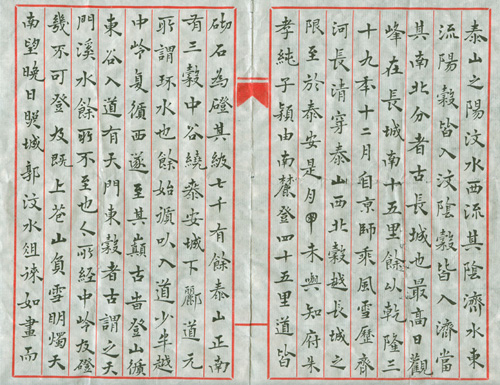 泰山之陽汶水西流其陰濟水東
流陽穀皆入汶陰穀皆入濟當
其南北分者古長城也最高日觀
峰在長城南十五里餘以乾隆三
十九年十二月自京師乘風雪歷齊
河長清穿泰山西北穀越長城之
限至於泰安是月甲未與知府朱
孝純子潁由南麓登四十五里道皆
砌石為磴其級七千有餘泰山正南
有三穀中谷繞泰安城下酈道元
所謂环水也餘始循以入道少半越
中岭复循西遂至其巔古昔登山循
東谷入道有天門東穀者古謂之天
門溪水餘所不至也今所經中岭及磴
幾不可登及既上苍山負雪明燭天
南望晚日映城郭汶水徂徠如畫而